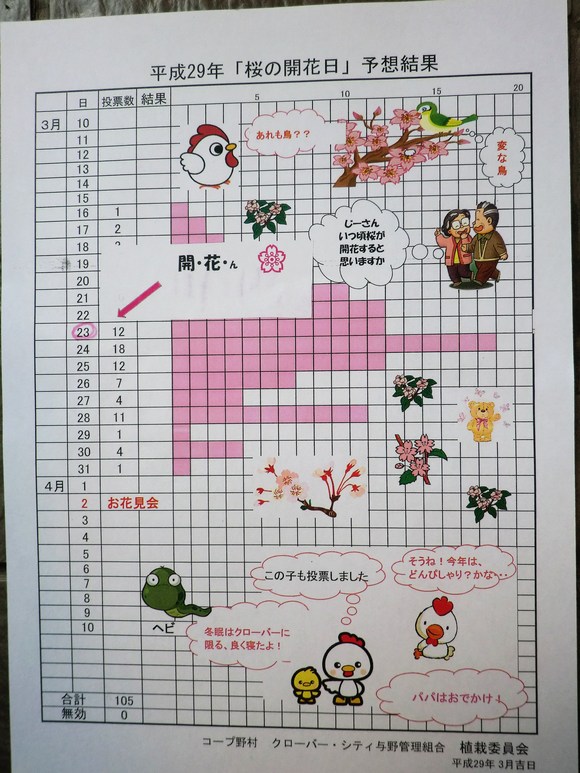 平成29年「桜の開花日」予想結果
日 投票数 結果 5 10 15 20
3月 10
11
12
13
14
15
16 1
17 2
18
19
20
21
22
23 12
24 18
25 12
26 7
27 4
28 11
29 1
30 4
31 1
4月 1
2 お花見会
3
4
5
6
7
8
9
10
合計 105
無効 0
あれも鳥??
変な鳥
じーさん
いつ頃桜が
開花すると
思いますか
開・花・ん
この子も投票しました
そうね!今年は、
どんぴしゃり?かな・・・
ヘビ
冬眠はクローバーに
限る、良く寝たよ!
パパはおでかけ!
コープ野村 クローバー・シティ与野管理組合 植栽委員会
平成29年 3月吉日